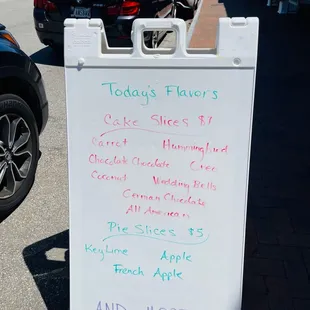 Today's Flavors
Cake Slices $7
Carrot Hummingbird
Chocolate Chocolate Oreo
Coconut Wedding Bells
German Chocolate
All American
Pie Slices $5
Key Lime Apple
French Apple
AND